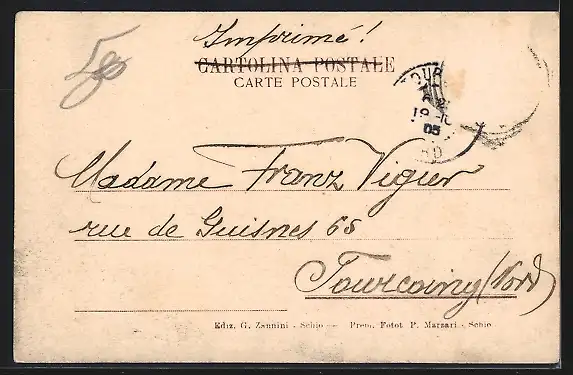 Imprimé!
CARTOLINA POSTALE
CARTE POSTALE
05
Madame Franz Vigier
rue de Guisnes 65
Tourcoing (Nord)
Ediz. G. Zannini - Schio — Prem. Fotot P. Marzari - Schio